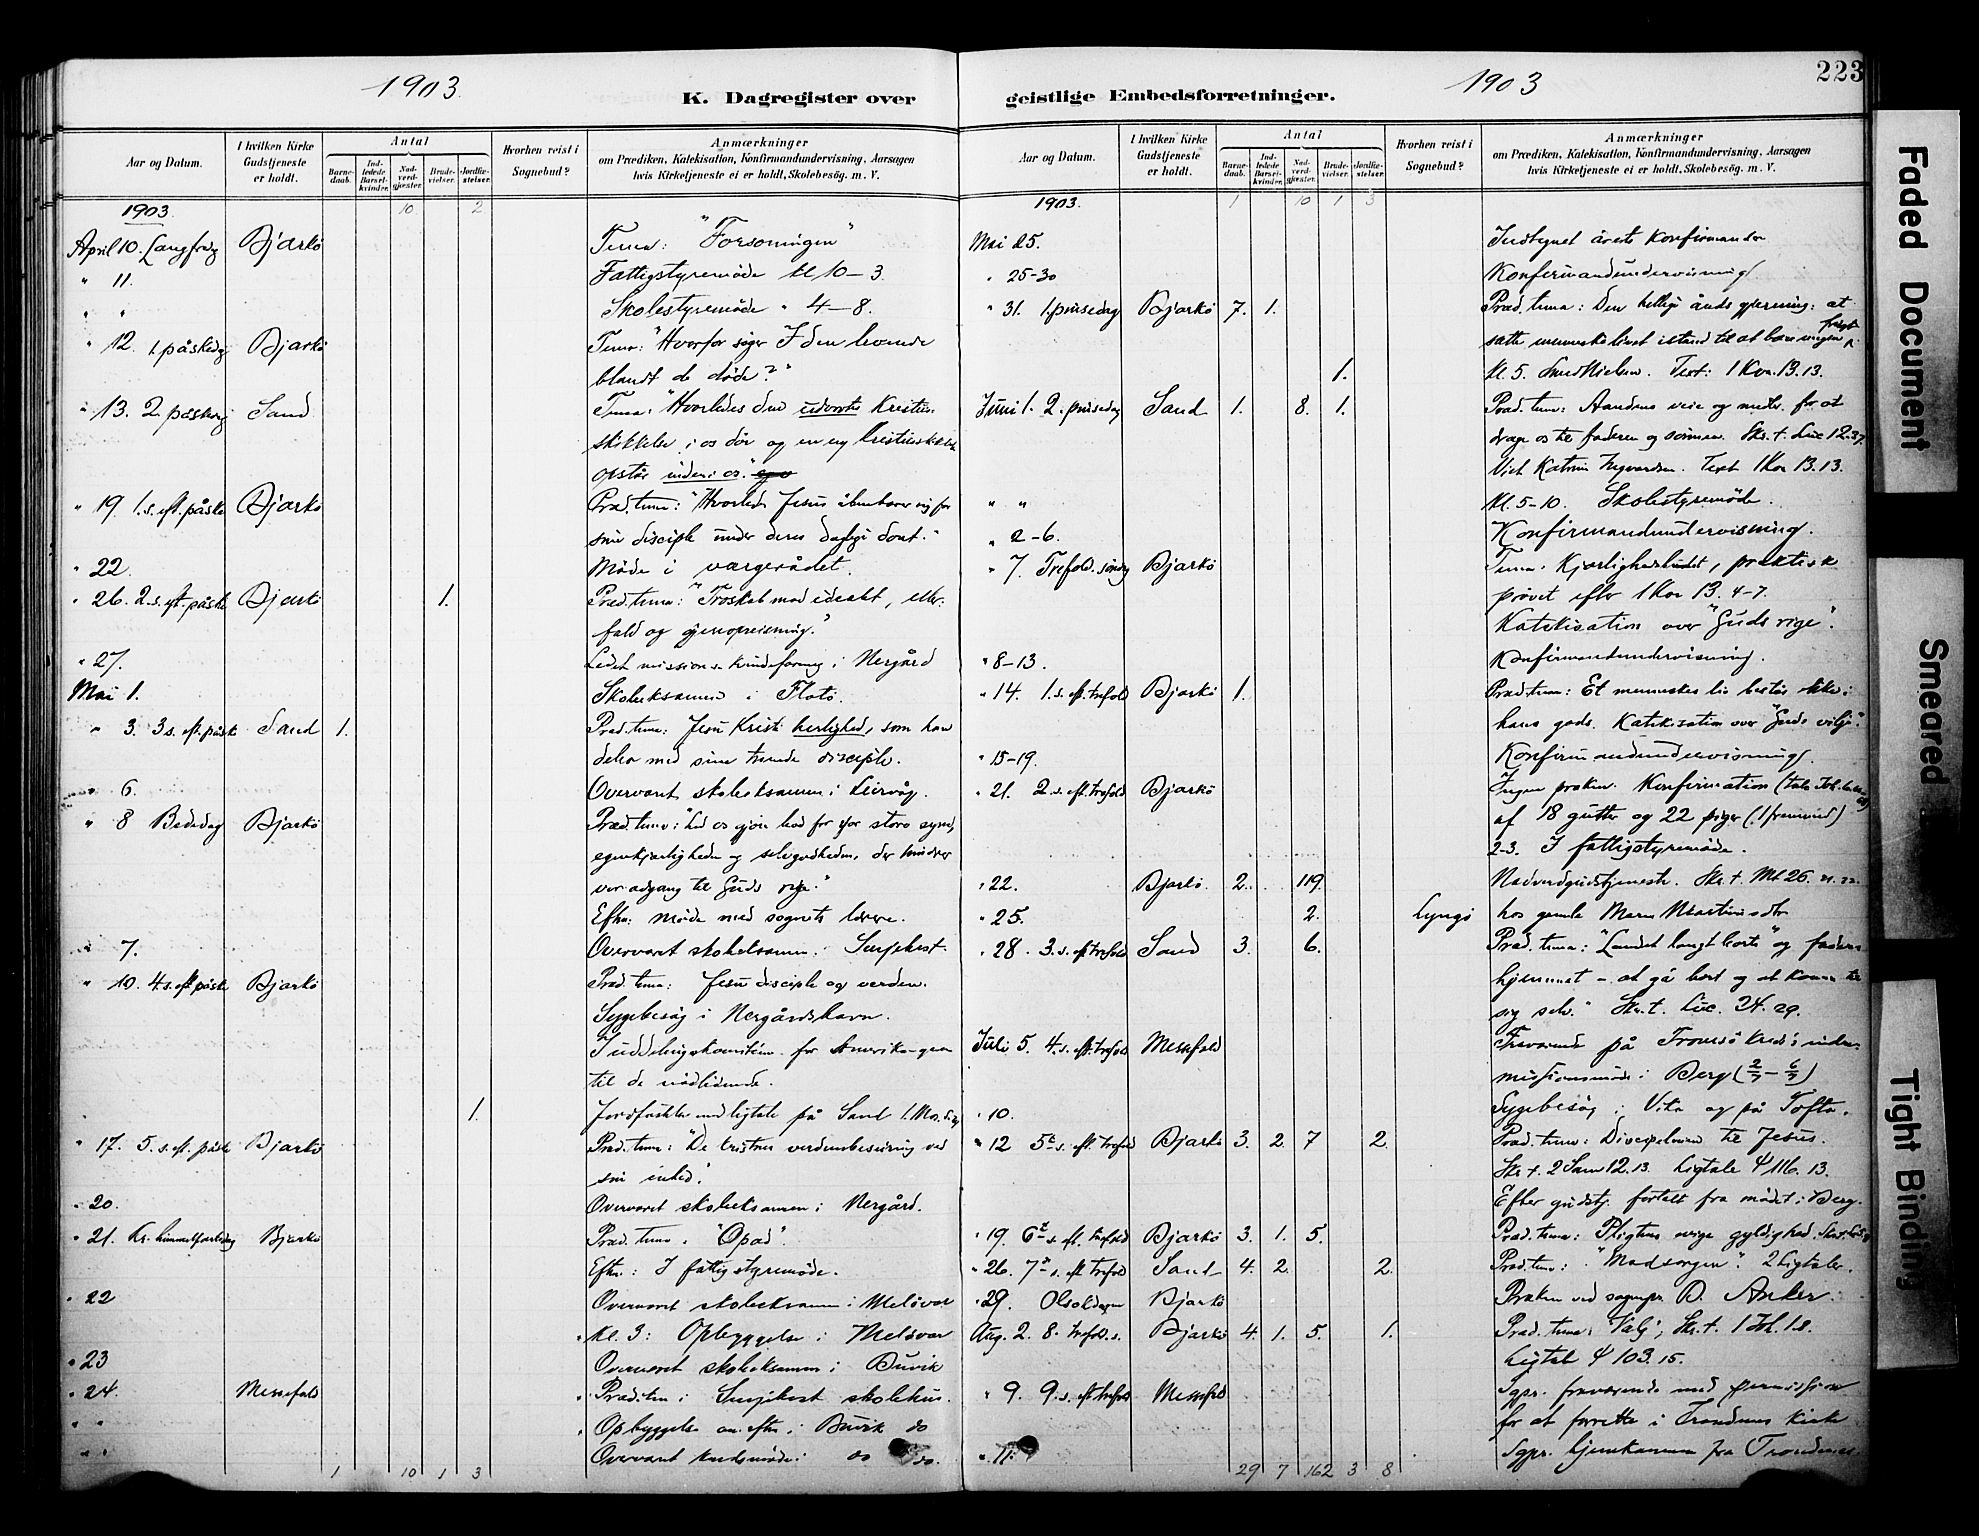 1903
K. Dagregister over
Aar og Datum.
I hvilken Kirke Gudstjeneste er holdt.
Antal
Barne-daab.
Ind-ledede Barsel-kvinder.
Nad-verd-gjæster.
Brude-vielser.
Jordfæ-stelser.
Hvorhen reist i Sognebud?
Anmærkninger
om Prædiken, Katekisation, Konfirmandundervisning, Aarsagen
hvis Kirketjeneste ei er holdt, Skolebesøg. m. V.
1903. 10 2
April 10. Langfredag Bjarkö Tema: "Forsoningen"
" 11. Fattigstyremöde kl 10–3.
" " Skolestyremöde " 4–8.
" 12. 1. påskedag Bjarkö Tema: "Hvorfor söger I den levende
blandt de döde?"
" 13. 2. påskedag Sand Tema: "Hvorledes den udvortes Kristus
skikkelse i os dör og en ny
opstår inden i os."
" 19. 1. s. eft. påske Bjarkö Præd. tema: "Hvorledes Jesus åbenbarer sig for
sine disciple under deres daglige dont."
" 22. Möde i værgerådet.
" 26. 2. s. eft. påske Bjarkö 1. Præd. tema: "Troskab mod idealet,
fald og gjenopreisning."
" 27. Ledet missions-kvindeforening i Nergård
Mai 1. Skoleksamen i Flatö.
" 3. 3 s. eft. påske Sand 1. Præd. tema: Jesu Kristi herlighed, som han
deler med sine troende disciple.
" 6. Overværet skoleeksamen i Leirvåg.
" 8 Bededag Bjarkö Præd. tema: Lad os gjöre bod for vor store synd,
egenkjærligheden og selvgodheden, der hindrer
vor adgang til Guds rige."
Eftm: möde med sognets lærere.
" 7. Overværet skoleksamen i
" 10. 4 s. eft påske Bjarkö Præd. tema: Jesu disciple og verden.
Sygebesög i Nergårdshavn.
I uddelingskomiteen for Amerika-
til de nödlidende.
1. Jordfæstelse med ligtale på Sand
" 17. 5. s. eft. påske Bjarkö Præd. tema: "De kristnes verdensbeseiring ved
sin enhed."
" 20. Overværet skoleeksamen i Nergård.
" 21. Kr. himmelfartsdag Bjarkö Præd. tema: "Opad".
Eftm.: I fattigstyremöde.
" 22 Overværet skoleeksamen i Melövær
" Kl. 3: Opbyggelse i Melövær
" 23 Overværet skoleeksamen i Buvik
" 24. Messefald " Præd. tema i skolehus.
" " " Opbyggelse om eftm. i Buvik do
" " Overværet i do do.
1 10 1 3
223
1903
geistlige Embedsforretninger.
Aar og Datum.
I hvilken Kirke Gudstjeneste er holdt.
Antal
Barne-daab.
Ind-ledede Barsel-kvinder.
Nad-verd-gjæster.
Brude-vielser.
Jordfæ-stelser.
Hvorhen reist i Sognebud?
Anmærkninger
om Prædiken, Katekisation, Konfirmandundervisning, Aarsagen
hvis Kirketjeneste ei er holdt, Skolebesøg. m. V.
1903. 1 10 1 3
Mai 25. Indtegnet årets konfirmander
" 25–30 Konfirmandundervisning
" 31. 1. pinsedag Bjarkö 7. 1. Præd. tema: Den hellige ånds gjerning: at
sætte menneskelivet istand til at bære megen frugt.
1. Kl. 5. Text: 1 Kor. 13.13.
Juni 1. 2. pinsedag Sand 1. 8. 1. Præd. tema: Aandens veie og midler for at
drage os til faderen og sönnen. Skr. t. Luc 12.37.
Viet Katrine Ingvardsen. Text 1 Kor 13.13.
" " Kl. 5–10. Skolestyremöde.
" 2–6. Konfirmandundervisning.
" 7. Trefold. söndag Bjarkö Tema: Kjærlighedsbudet, praktisk
prövet efter 1 Kor 13. 4–7.
Katekisation over "Guds rige".
" 8–13. Konfirmandundervisning.
" 14. 1. s. eft. trefold Bjarkö 1. Præd. tema: Et menneskes liv består ikke i
hans gods. Katekisation over "Guds vilje".
" 15–19. Konfirmandundervisning.
" 21. 2. s. eft. trefold Bjarkö Ingen præken. Konfirmation
af 18 gutter og 22 piger
2–3. I fattigstyremöde.
" 22. Bjarkö. 2. 119. Nadverdgudstjeneste. Skr. t. Mt 26.
" 25. 2. Lyngö hos gamle Maren Martinsdtr
" 28. 3. s. eft trefold Sand 3. 6. Præd. tema: "Landet langt borte" og fader-
hjemmet – at gå bort og at komme til
sig selv." Skr. t. Luc. 24. 29.
Juli 5. 4. s. eft. trefold Messefald Fraværende på Tromsö kreds's indre-
missionsmöde i Berg (2/7 – 6/7)
" 10. Sygebesög i Vika og på Tofta.
" 12 5te s. eft. trefold Bjarkö 3. 2. 7 2. Præd. tema: Discipelveien til Jesus.
Skr. t. 2 Sam 12. 13. Ligtale ψ 116. 13.
Efter gudstj. fortalt fra mödet i Berg.
" 19. 6te s. eft. trefold Bjarkö 3. 1. 5. Præd. tema: Pligtens evige gyldighed.
" 26. 7de s. eft trefold Sand 4. 2. 2. Præd. tema: "Madsorgen". 2 Ligtaler.
" 29. Olsokdagen Bjarkö Præken ved sognepr. D. Anker.
Aug. 2. 8. trefold. s. Bjarkö 4. 1. 5. 1. Præd. tema: "Valg", Skr. t. 1 Joh. 1.8.
Ligtale ψ 103. 15.
" 9. 9. s. eft trefold Messefald Sgpr. fraværende med permission
for at forrette i Trondenes kirke
" 11. Sgpr. hjemkommen fra Trondenes.
29 7 162 3 8
Faded Document
Smeared
Tight Binding